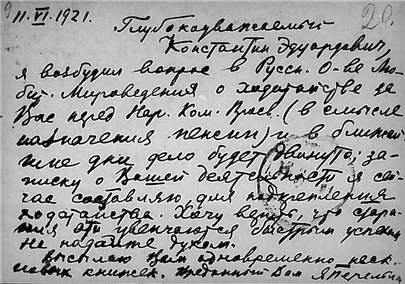 11.VI.1921.
20.
Глубокоуважаемый
Константин Эдуардович,
я возбудил вопрос в Русск. О-ве Лю-
бит. Мироведения о ходатайстве за
Вас перед Нар. Ком. Прос. (в смысле
назначения пенсии) и в ближай-
шие дни дело будет двинуто; за-
писку о Вашей деятельности я сей-
час составляю для подкрепления
ходатайства. Хочу верить, что стара-
ния эти увенчаются быстрым успехом,
не падайте духом.
Высылаю Вам одновременно неск.
новых книжек. Преданный Вам Я Перельман